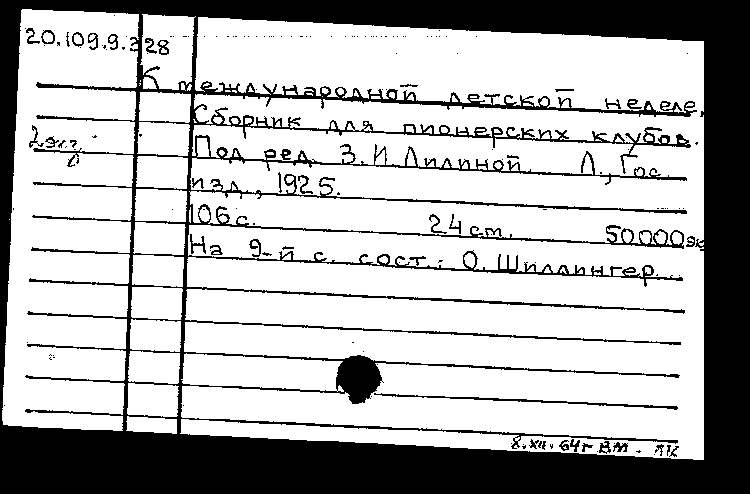 20.109.9.328
К международной детской неделе.
Сборник для пионерских клубов.
2 экз.
Под ред. З. И. Лилиной. Л., Гос
изд., 1925.
106 с. 24 см. 50000 эк
На 9-й с. сост.: О. Шиллингер...
8.XII.64 г ВМ. ЛК